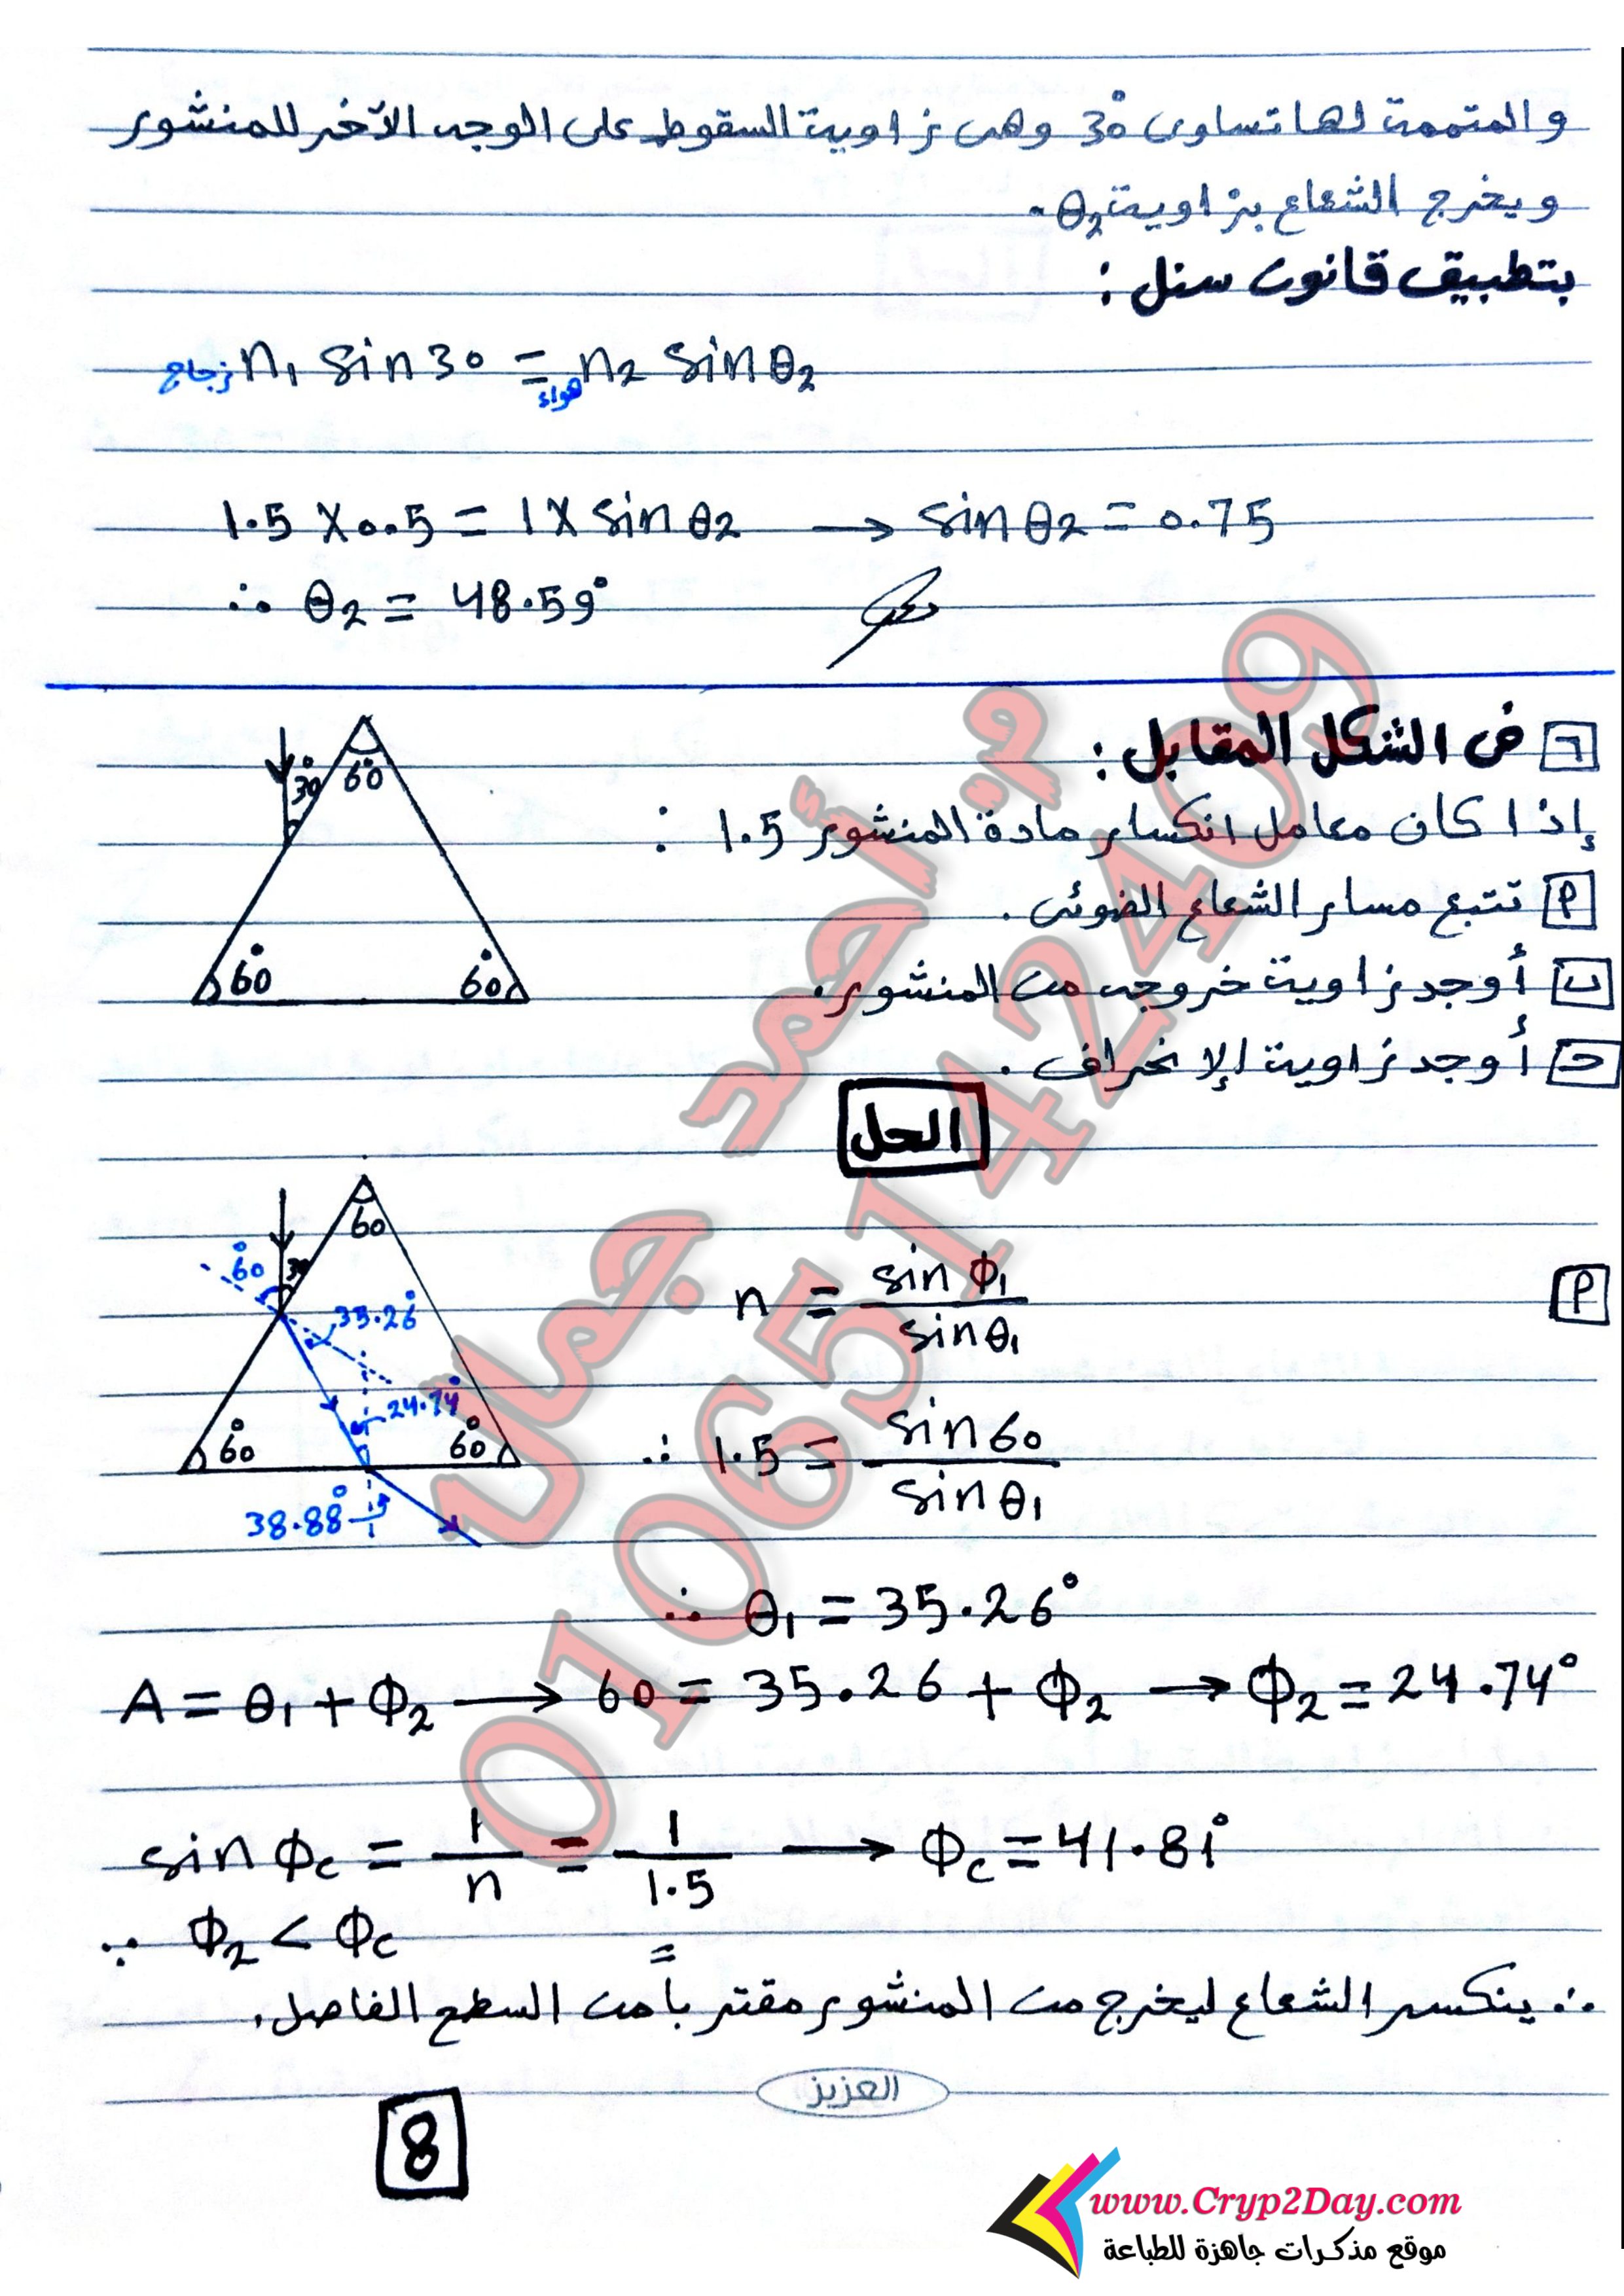 والمتممة لها تساوى 30° وهى زاوية السقوط على الوجه الآخر للمنشور
ويخرج الشعاع بزاوية θ₂.
بتطبيق قانون سنل :
زجاج n₁ sin 30 = هواء n₂ sin θ₂
1.5 × 0.5 = 1 × sin θ₂ → sin θ₂ = 0.75
∴ θ₂ = 48.59°
٦ فى الشكل المقابل :
إذا كان معامل انكسار مادة المنشور 1.5 :
أ تتبع مسار الشعاع الضوئى .
ب أوجد زاوية خروجه من المنشور.
ج أوجد زاوية الإنحراف .
30°
60°
60°
60°
الحل
أ
n = sin Φ₁ / sin θ₁
∴ 1.5 = sin 60 / sin θ₁
60°
30
60
35.26°
24.74°
60°
60°
38.88°
∴ θ₁ = 35.26°
A = θ₁ + Φ₂ → 60 = 35.26 + Φ₂ → Φ₂ = 24.74°
sin Φc = 1/n = 1/1.5 → Φc = 41.81°
∵ Φ₂ < Φc
∴ ينكسر الشعاع ليخرج من المنشور مقترباً من السطح الفاصل.
العزيز
8
م. أحمد جمال
01065142409
www.Cryp2Day.com
موقع مذكرات جاهزة للطباعة